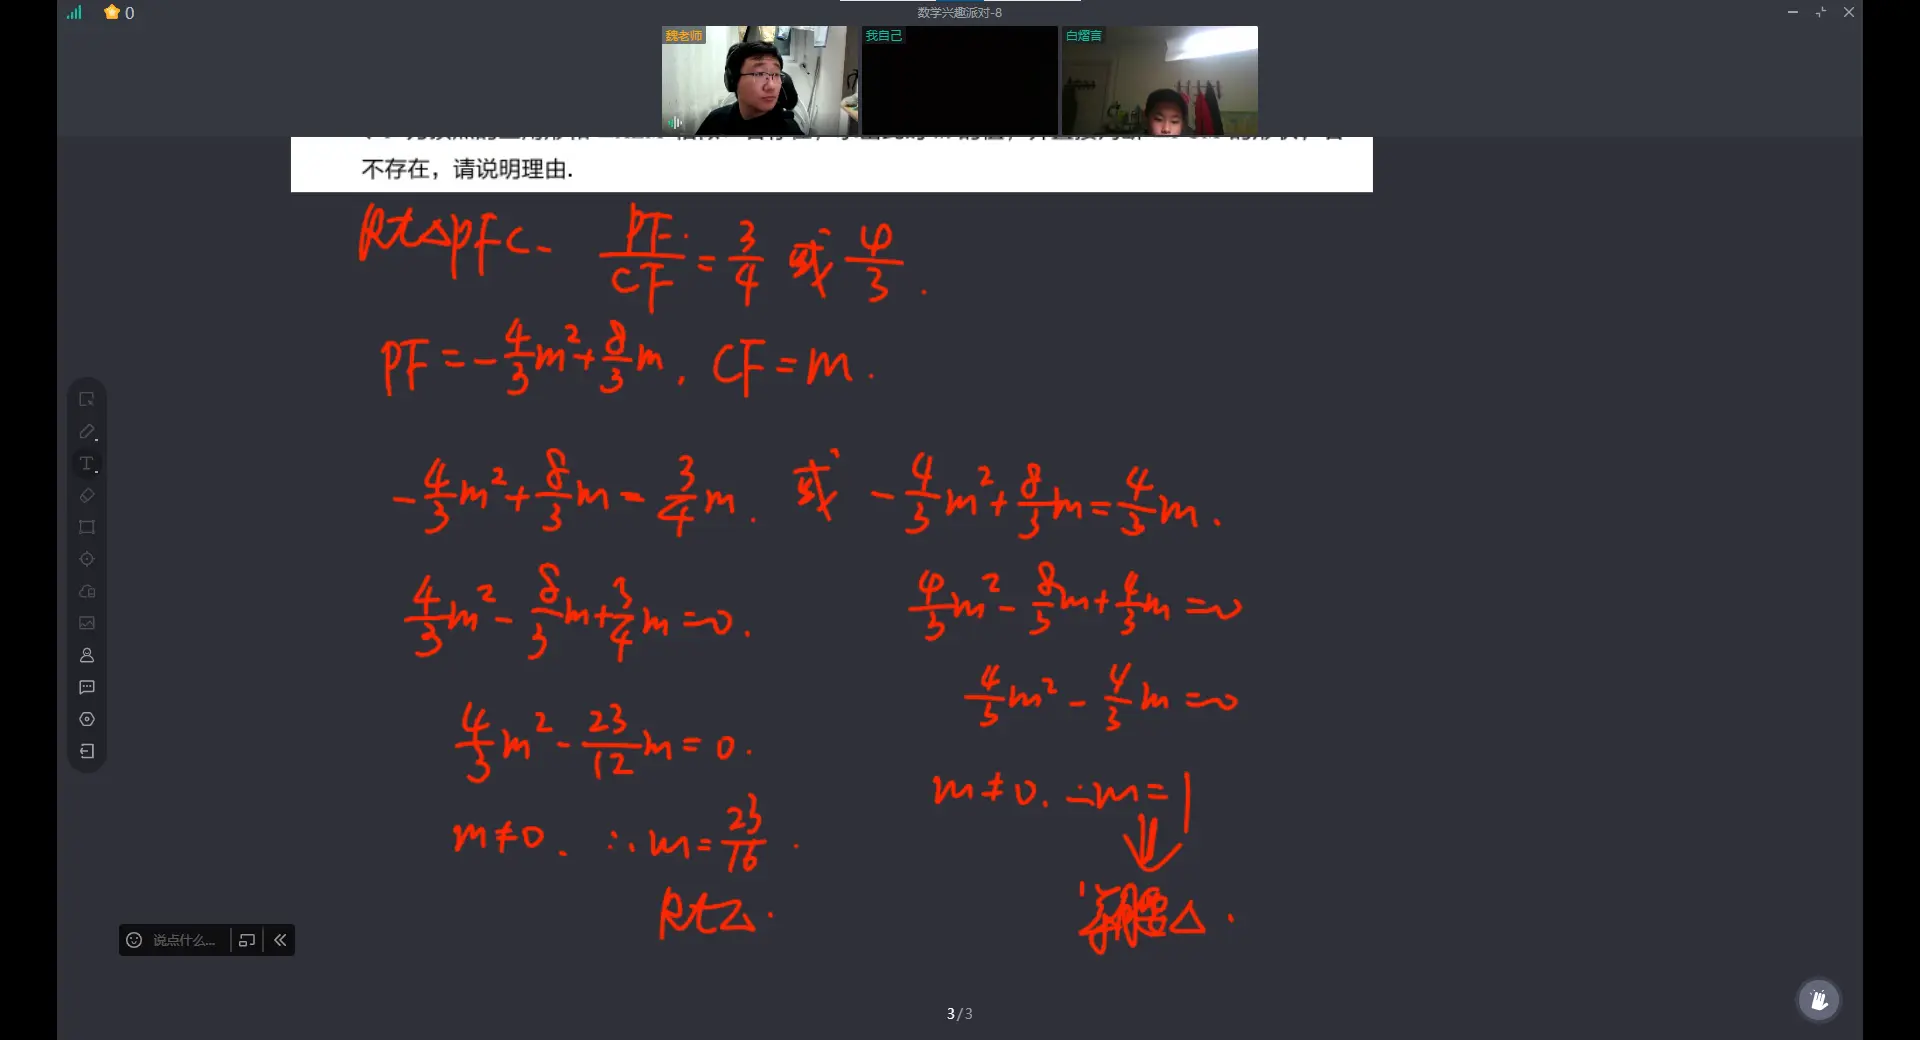 0
数学兴趣派对-8
魏老师
我自己
白熠言
不存在，请说明理由.
Rt△PFC- PF/CF = 3/4 或 4/3.
PF = -4/3m²+8/3m, CF = m.
-4/3m²+8/3m = 3/4m. 或 -4/3m²+8/3m = 4/3m.
4/3m²-8/3m+3/4m=0.
4/3m²-8/3m+4/3m=0
4/3m²-4/3m=0
4/3m²-23/12m=0.
m≠0. ∴m=1
m≠0. ∴m=23/16.
Rt△.
等腰△.
说点什么...
3/3